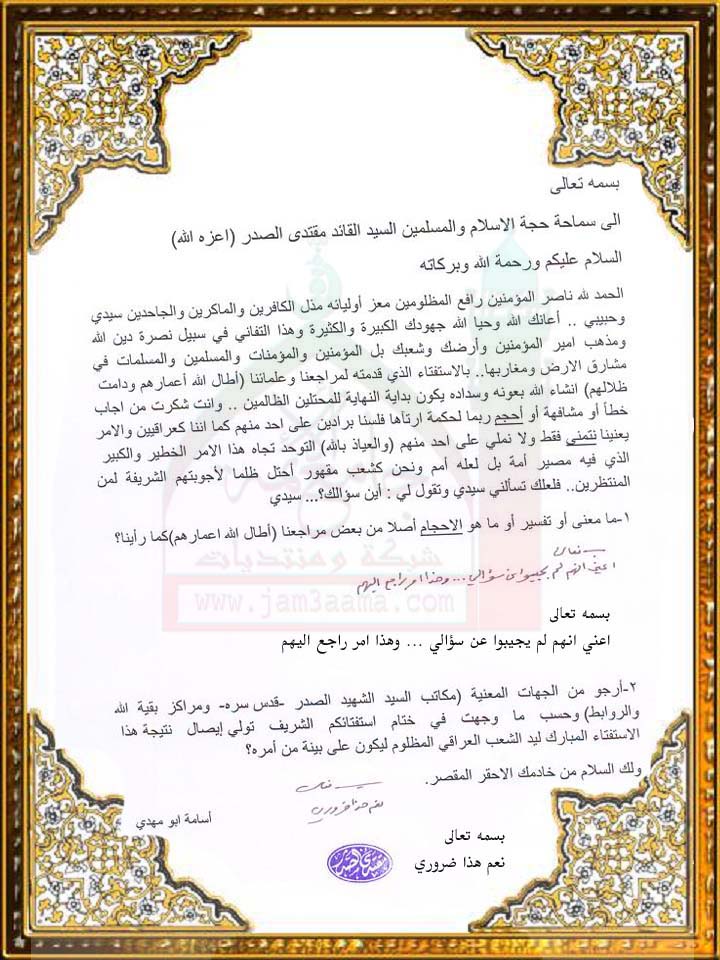 بسمه تعالى
الى سماحة حجة الاسلام والمسلمين السيد القائد مقتدى الصدر (اعزه الله)
السلام عليكم ورحمة الله وبركاته
الحمد لله ناصر المؤمنين رافع المظلومين معز أوليائه مذل الكافرين والماكرين والجاحدين سيدي
وحبيبي .. أعانك الله وحيا الله جهودك الكبيرة والكثيرة وهذا التفاني في سبيل نصرة دين الله
ومذهب امير المؤمنين وأرضك وشعبك بل المؤمنين والمؤمنات والمسلمين والمسلمات في
مشارق الارض ومغاربها.. بالاستفتاء الذي قدمته لمراجعنا وعلمائنا (أطال الله أعمارهم ودامت
ظلالهم) انشاء الله بعونه وسداده يكون بداية النهاية للمحتلين الظالمين .. وانت شكرت من اجاب
خطأ أو مشافهة أو أحجم ربما لحكمة ارتأها فلسنا برادين على احد منهم كما اننا كعراقيين والامر
يعنينا نتمنى فقط ولا نملي على احد منهم (والعياذ بالله) التوحد تجاه هذا الامر الخطير والكبير
الذي فيه مصير أمة بل لعله أمم ونحن كشعب مقهور أحتل ظلما لأجوبتهم الشريفة لمن
المنتظرين.. فلعلك تسألني سيدي وتقول لي : أين سؤالك؟... سيدي
١-ما معنى أو تفسير أو ما هو الاحجام أصلا من بعض مراجعنا (أطال الله اعمارهم)كما رأينا؟
بسمه تعالى
اعني انهم لم يجيبوا عن سؤالي ... وهذا امر راجع اليهم
شبكة ومنتديات
www.jam3aama.com
بسمه تعالى
اعني انهم لم يجيبوا عن سؤالي ... وهذا امر راجع اليهم
٢-أرجو من الجهات المعنية (مكاتب السيد الشهيد الصدر -قدس سره- ومراكز بقية الله
والروابط) وحسب ما وجهت في ختام استفتائكم الشريف تولي إيصال نتيجة هذا
الاستفتاء المبارك ليد الشعب العراقي المظلوم ليكون على بينة من أمره؟
ولك السلام من خادمك الاحقر المقصر.
بسمه تعالى
نعم هذا ضروري
أسامة ابو مهدي
بسمه تعالى
نعم هذا ضروري